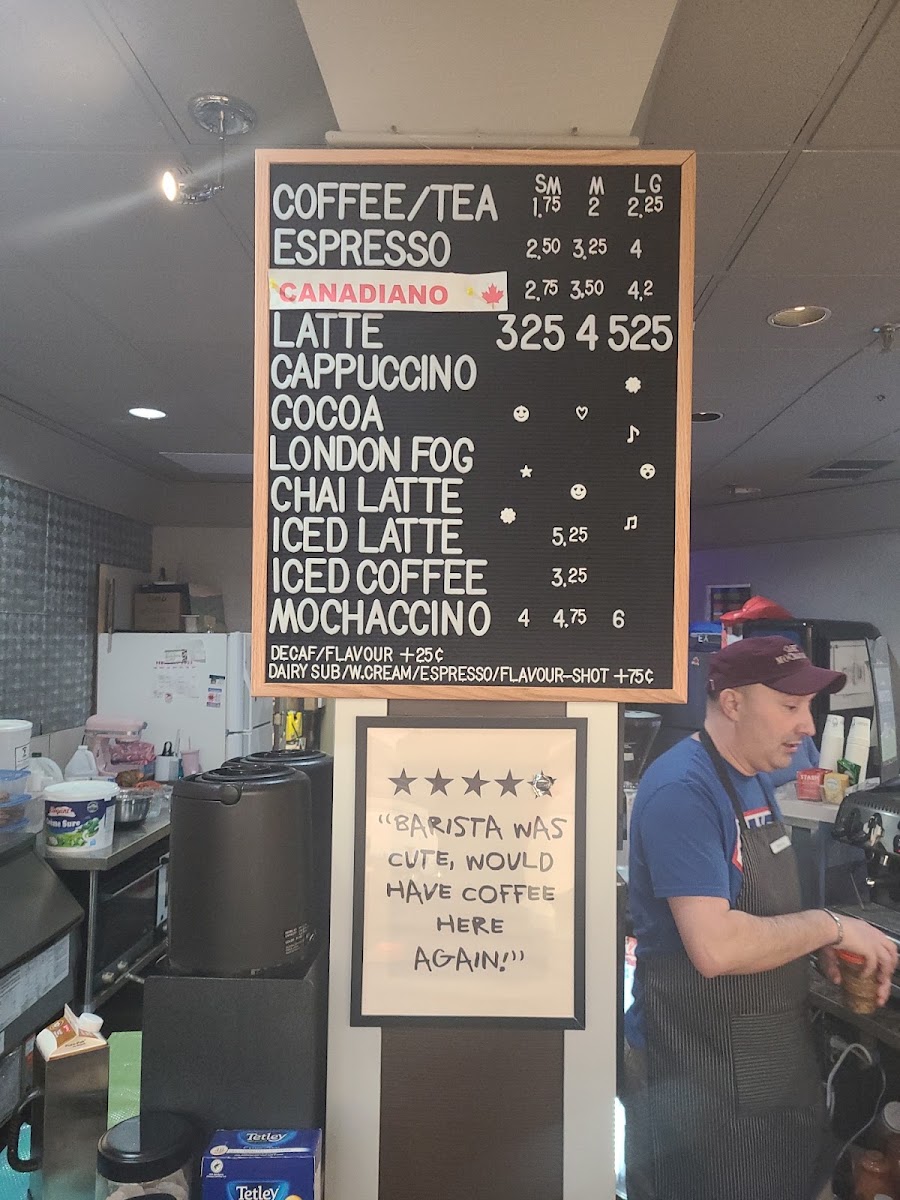 SM M LG
COFFEE/TEA 1.75 2 2.25
ESPRESSO 2.50 3.25 4
CANADIANO 2.75 3.50 4.2
LATTE 325 4 525
CAPPUCCINO
COCOA
LONDON FOG
CHAI LATTE
ICED LATTE 5.25
ICED COFFEE 3.25
MOCHACCINO 4 4.75 6
DECAF/FLAVOUR +25¢
DAIRY SUB/W.CREAM/ESPRESSO/FLAVOUR-SHOT +75¢
"BARISTA WAS
CUTE, WOULD
HAVE COFFEE
HERE
AGAIN!"
Tetley
Tetley
STASH